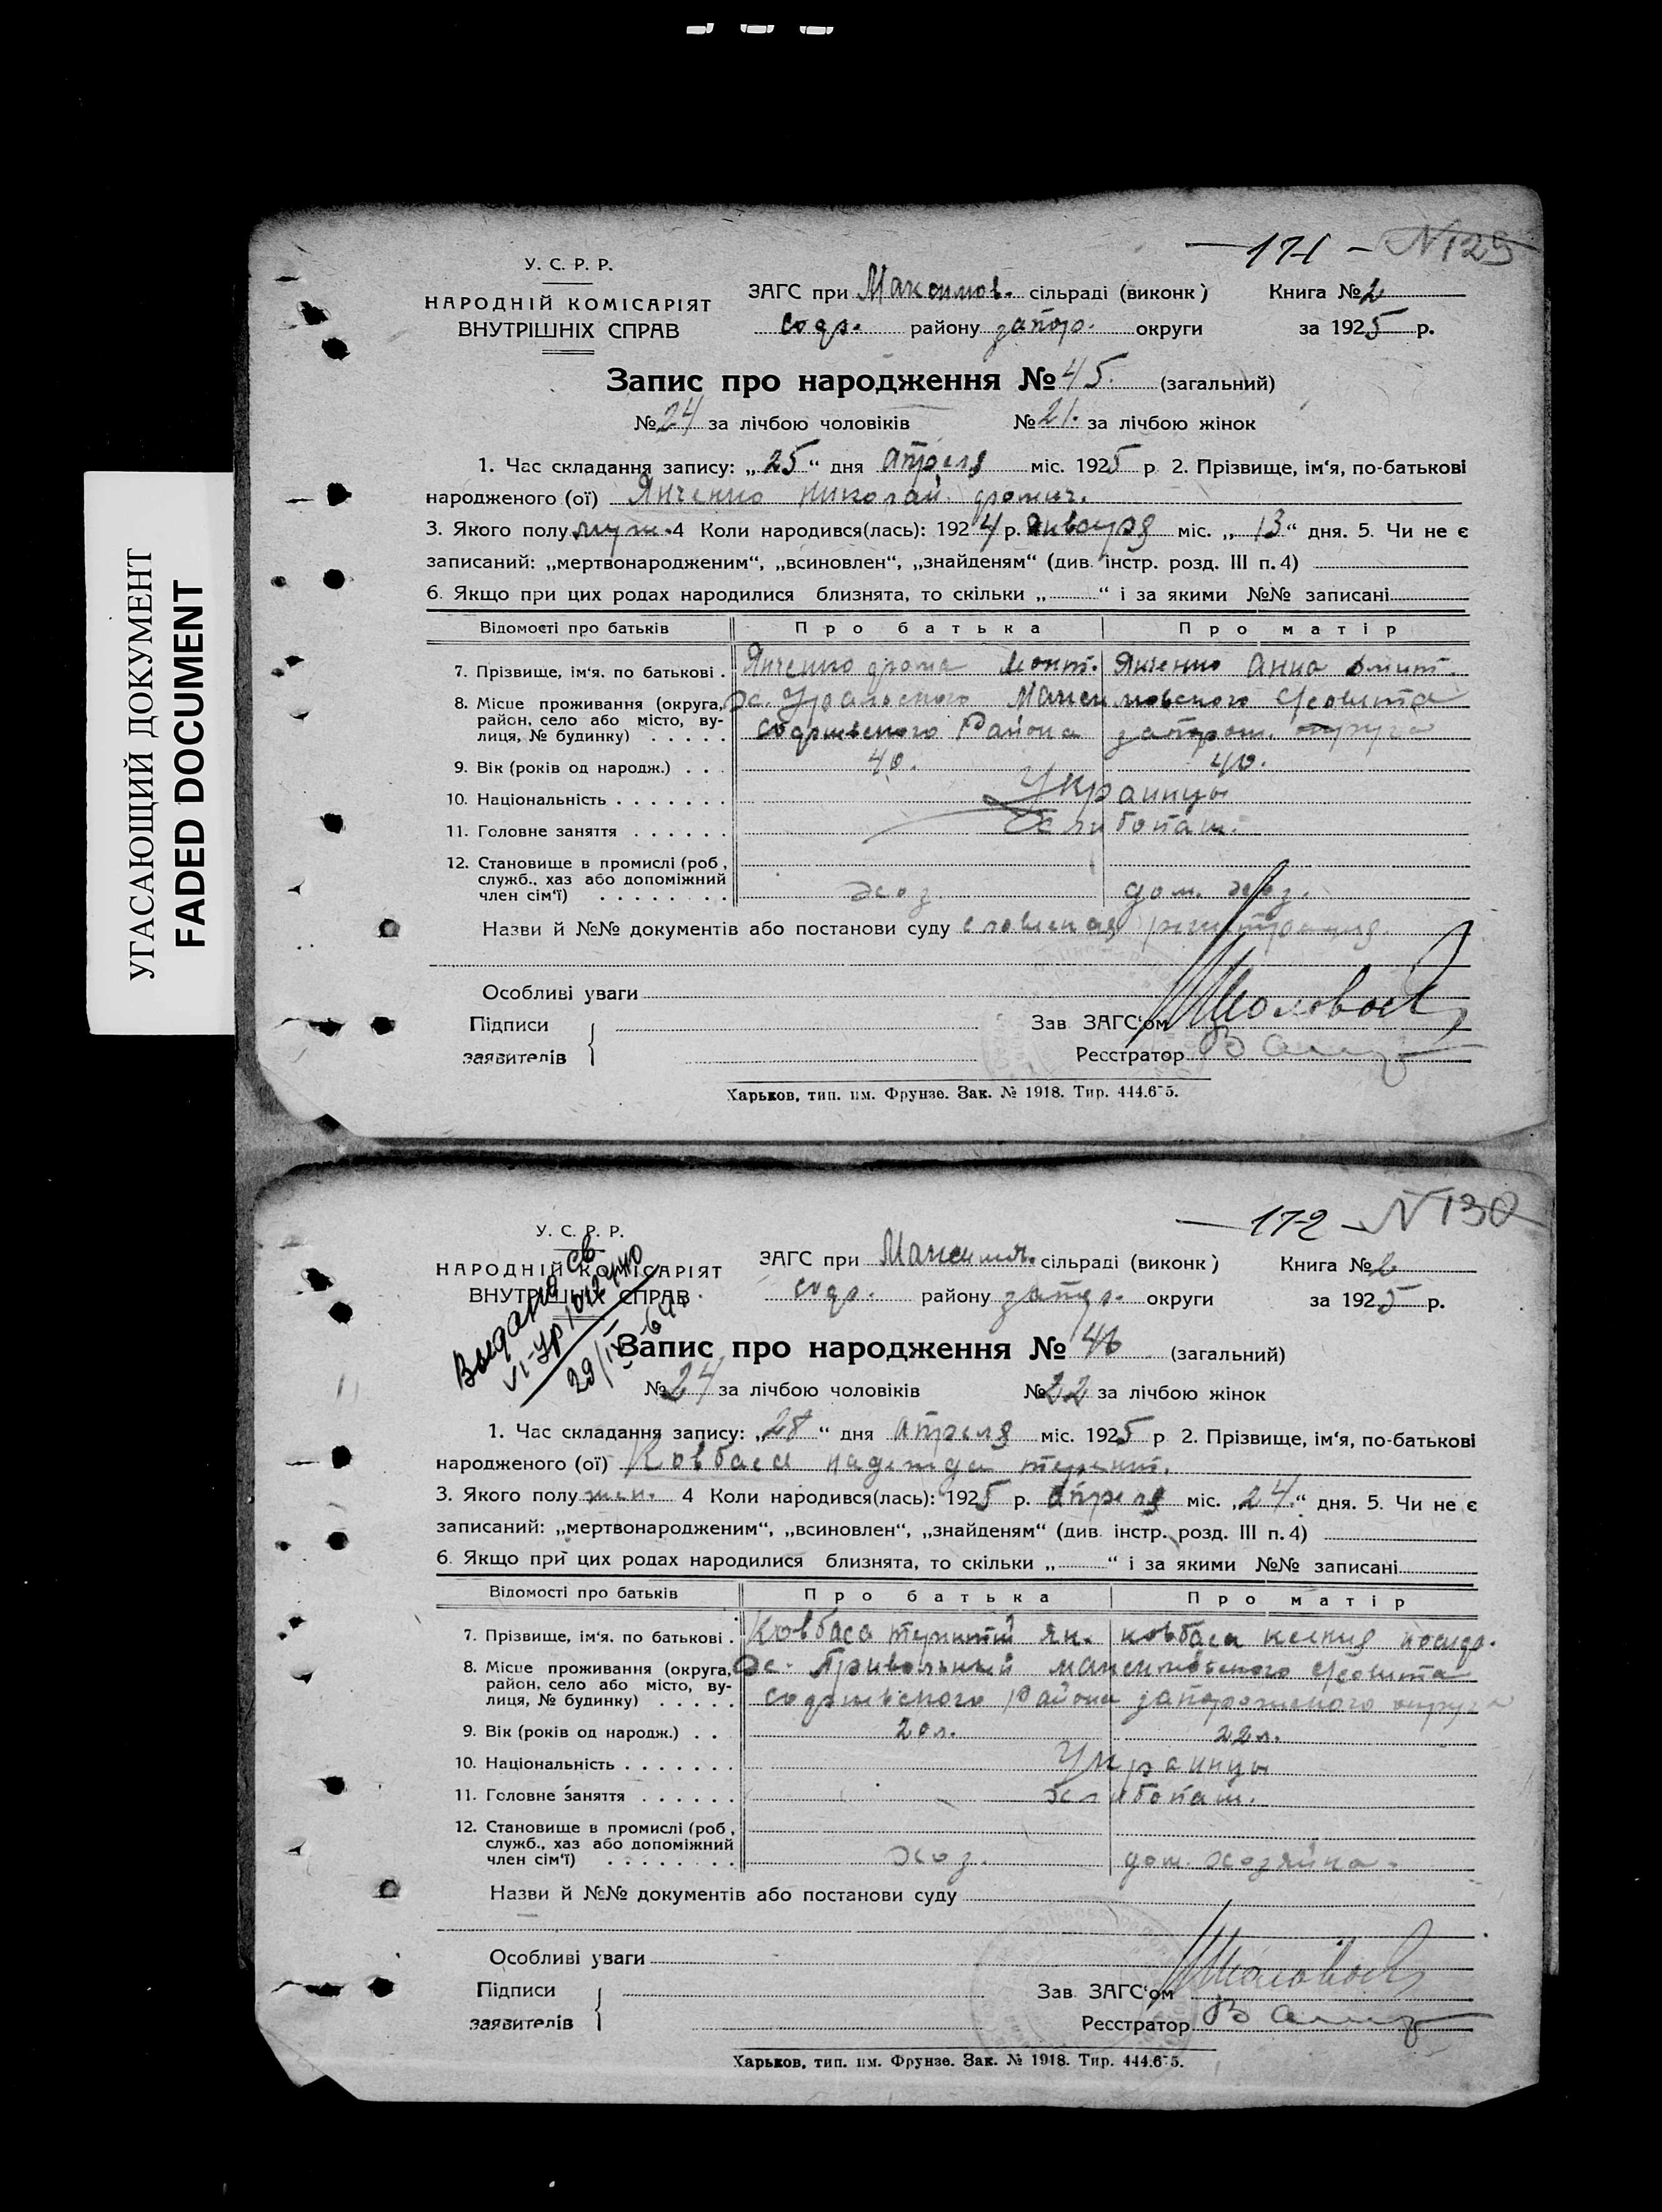 УГАСАЮЩИЙ ДОКУМЕНТ
FADED DOCUMENT
— 171 — N 129
У. С. Р. Р.
НАРОДНІЙ КОМІСАРІЯТ
ВНУТРІШНІХ СПРАВ
ЗАГС при Максимов. сільраді (виконк) Книга № 2
софр. району запор. округи за 1925 р.
Запис про народження № 45. (загальний)
№ 24 за лічбою чоловіків № 21. за лічбою жінок
1. Час складання запису: „25“ дня апреля міс. 1925 р 2. Прізвище, ім‘я, по-батькові
народженого (ої) Янченко николай
3. Якого полу муж. 4 Коли народився(лась): 1924 р. января міс. „13“ дня. 5. Чи не є
записаний: „мертвонародженим“, „всиновлен“, „знайденям“ (див. інстр. розд. III п. 4)
6. Якщо при цих родах народилися близнята, то скільки „ “ і за якими №№ записані
Відомості про батьків Про батька Про матір
7. Прізвище, ім‘я. по батькові . Янченко Янченко Анна
8. Місце проживання (округа, х. Уральского Максимовского с/совита
район, село або місто, ву- софиевского Района запорож. округа
лиця, № будинку) . . . . .
9. Вік (років од народж.) . . . 40. 40.
10. Національність . . . . . . . Украинцы
11. Головне заняття . . . . . . хлибопаш.
12. Становище в промислі (роб.,
служб., хаз або допоміжний
член сім‘ї) . . . . . . . . хоз. дом. хоз.
Назви й №№ документів або постанови суду регистрация.
Особливі уваги
Підписи Зав ЗАГС‘ом
заявителів Реєстратор
Харьков, тип. им. Фрунзе. Зак. № 1918. Тир. 444.675.
— 172 — N 130
У. С. Р. Р.
НАРОДНІЙ КОМІСАРІЯТ
ВНУТРІШНІХ СПРАВ
Выдано св
29/IV-64.
ЗАГС при Максимов. сільраді (виконк) Книга № 2
софр. району запор. округи за 1925 р.
Запис про народження № 46 (загальний)
№ 24 за лічбою чоловіків № 22 за лічбою жінок
1. Час складання запису: „28“ дня апреля міс. 1925 р 2. Прізвище, ім‘я, по-батькові
народженого (ої) Ковбаса надежда терент.
3. Якого полу жен. 4 Коли народився(лась): 1925 р. апреля міс. „24.“ дня. 5. Чи не є
записаний: „мертвонародженим“, „всиновлен“, „знайденям“ (див. інстр. розд. III п. 4)
6. Якщо при цих родах народилися близнята, то скільки „ “ і за якими №№ записані
Відомості про батьків Про батька Про матір
7. Прізвище, ім‘я. по батькові . Ковбаса терентий як. ковбаса ксения
8. Місце проживання (округа, х. Привольный максимовского с/совита
район, село або місто, ву- софиевского Района запорожского округа
лиця, № будинку) . . . . .
9. Вік (років од народж.) . . 20 л. 22 л.
10. Національність . . . . . . . Украинцы
11. Головне заняття . . . . . . хлибопаш.
12. Становище в промислі (роб.,
служб., хаз або допоміжний
член сім‘ї) . . . . . . . . хоз. дом. хозяйка.
Назви й №№ документів або постанови суду
Особливі уваги
Підписи Зав ЗАГС‘ом
заявителів Реєстратор
Харьков, тип. им. Фрунзе. Зак. № 1918. Тир. 444.675.